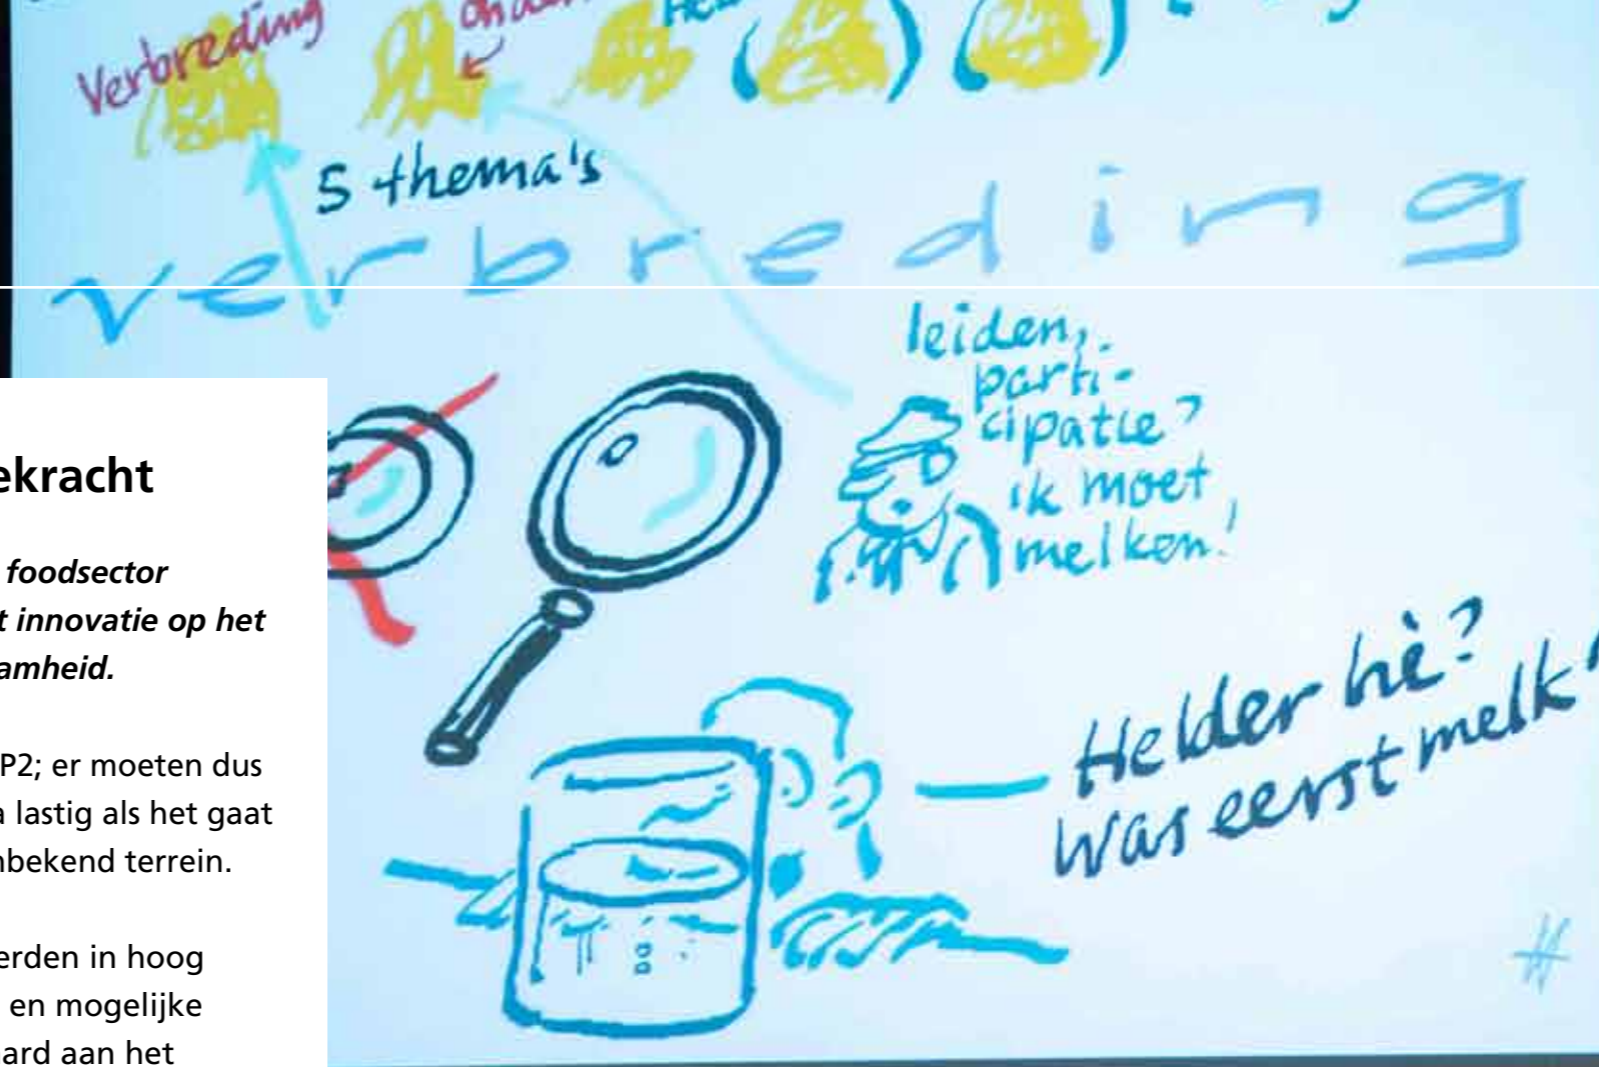 Verbreding
5 thema's
verbreding
leiden,
parti-
cipatie?
ik moet
melken!
Helder hè?
Was eerst melk
ekracht
foodsector
t innovatie op het
amheid.
P2; er moeten dus
a lastig als het gaat
nbekend terrein.
erden in hoog
en mogelijke
ard aan het